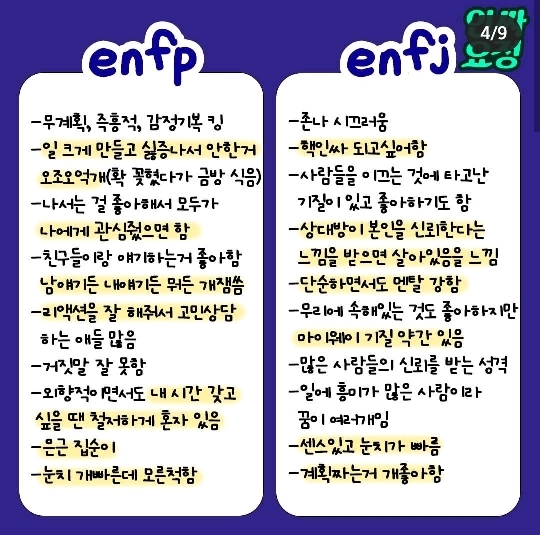 enfp
-무계획, 즉흥적, 감정기복 킹
-일 크게 만들고 싫증나서 안한거
오조오억개(확 꽂혔다가 금방 식음)
-나서는 걸 좋아해서 모두가
나에게 관심줬으면 함
-친구들이랑 얘기하는거 좋아함
남얘기든 내얘기든 뭐든 개잼씀
-리액션을 잘 해줘서 고민상담
하는 애들 많음
-거짓말 잘 못함
-외향적이면서도 내 시간 갖고
싶을 땐 철저하게 혼자 있음
-은근 집순이
-눈치 개빠른데 모른척함
enfj
-존나 시끄러움
-핵인싸 되고싶어함
-사람들을 이끄는 것에 타고난
기질이 있고 좋아하기도 함
-상대방이 본인을 신뢰한다는
느낌을 받으면 살아있음을 느낌
-단순하면서도 멘탈 강함
-무리에 속해있는 것도 좋아하지만
마이웨이 기질 약간 있음
-많은 사람들의 신뢰를 받는 성격
-일에 흥미가 많은 사람이라
꿈이 여러개임
-센스있고 눈치가 빠름
-계획짜는거 개좋아함
4/9